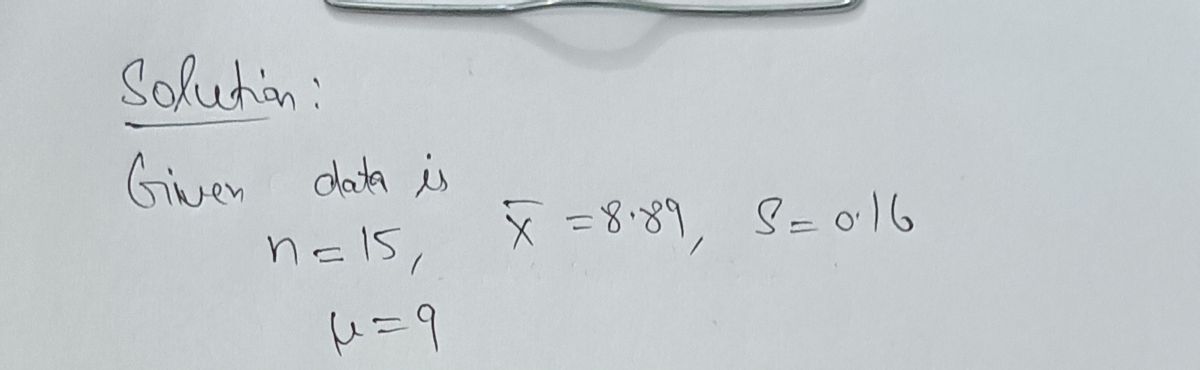 Solution:
Given data is
n = 15, x̄ = 8.89, S = 0.16
μ = 9